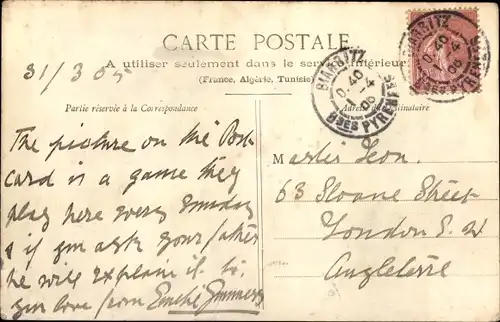 CARTE POSTALE
A utiliser seulement dans le service intérieur
(France, Algérie, Tunisie)
Partie réservée à la Correspondance
Adresse du Destinataire
BIARRITZ
0.40
-4
BSES PYRENEES
BIARRITZ
0.40
-4
BSES PYRENEES
31/3 05
The picture on the Post
card is a game they
play here every Sunday
& if you ask your father
he will explain it to
you love from
Master Leon.
63 Sloane Street
London S.W
Angleterre